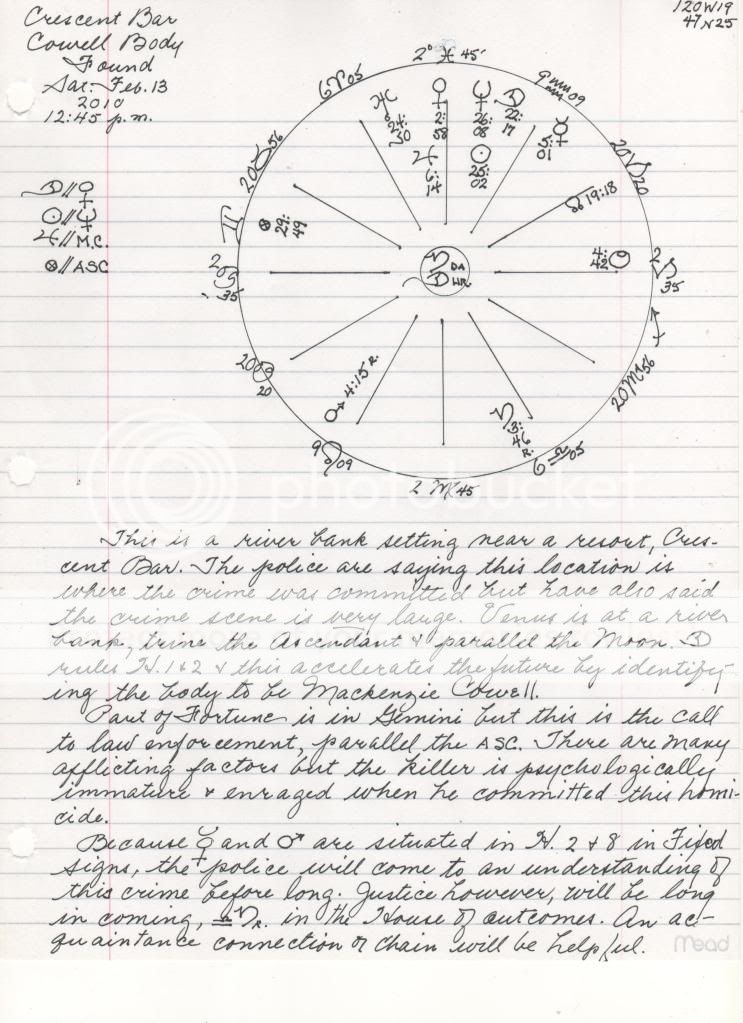 Crescent Bar
Cowell Body
Found
Sat: Feb. 13
2010
12:45 p.m.
120W19
47N25
2° ♓ 45'
6♈05
9♒09
20♉56
20♑20
♅ 24:30
♀ 2:58
♆ 26:08
☽ 22:17
☿ 5:01
♃ 6:14
☉ 25:02
☊ 19:18
☽//♀
☉//♆
♃//M.C.
⊗//ASC
♊
⊗ 29:49
2♋35
4:42
2♑35
♄ DA
☽ HR.
20♋20
♂ 4:15 R.
♄ 3:46 R.
♐
20♏56
9♌09
6♎05
2♍45
photobucket
This is a river bank setting near a resort, Cres-
cent Bar. The police are saying this location is
where the crime was committed but have also said
the crime scene is very large. Venus is at a river
bank, trine the Ascendant & parallel the Moon. ☽
rules H. 1 & 2 & this accelerates the future by identify-
ing the body to be Mackenzie Cowell.
Part of Fortune is in Gemini but this is the call
to law enforcement, parallel the ASC. There are many
afflicting factors but the killer is psychologically
immature & enraged when he committed this homi-
cide.
Because ☿ and ♂ are situated in H. 2 & 8 in Fixed
signs, the police will come to an understanding of
this crime before long. Justice however, will be long
in coming, ♎♄R. in the House of outcomes. An ac-
quaintance connection or chain will be helpful.
Mead